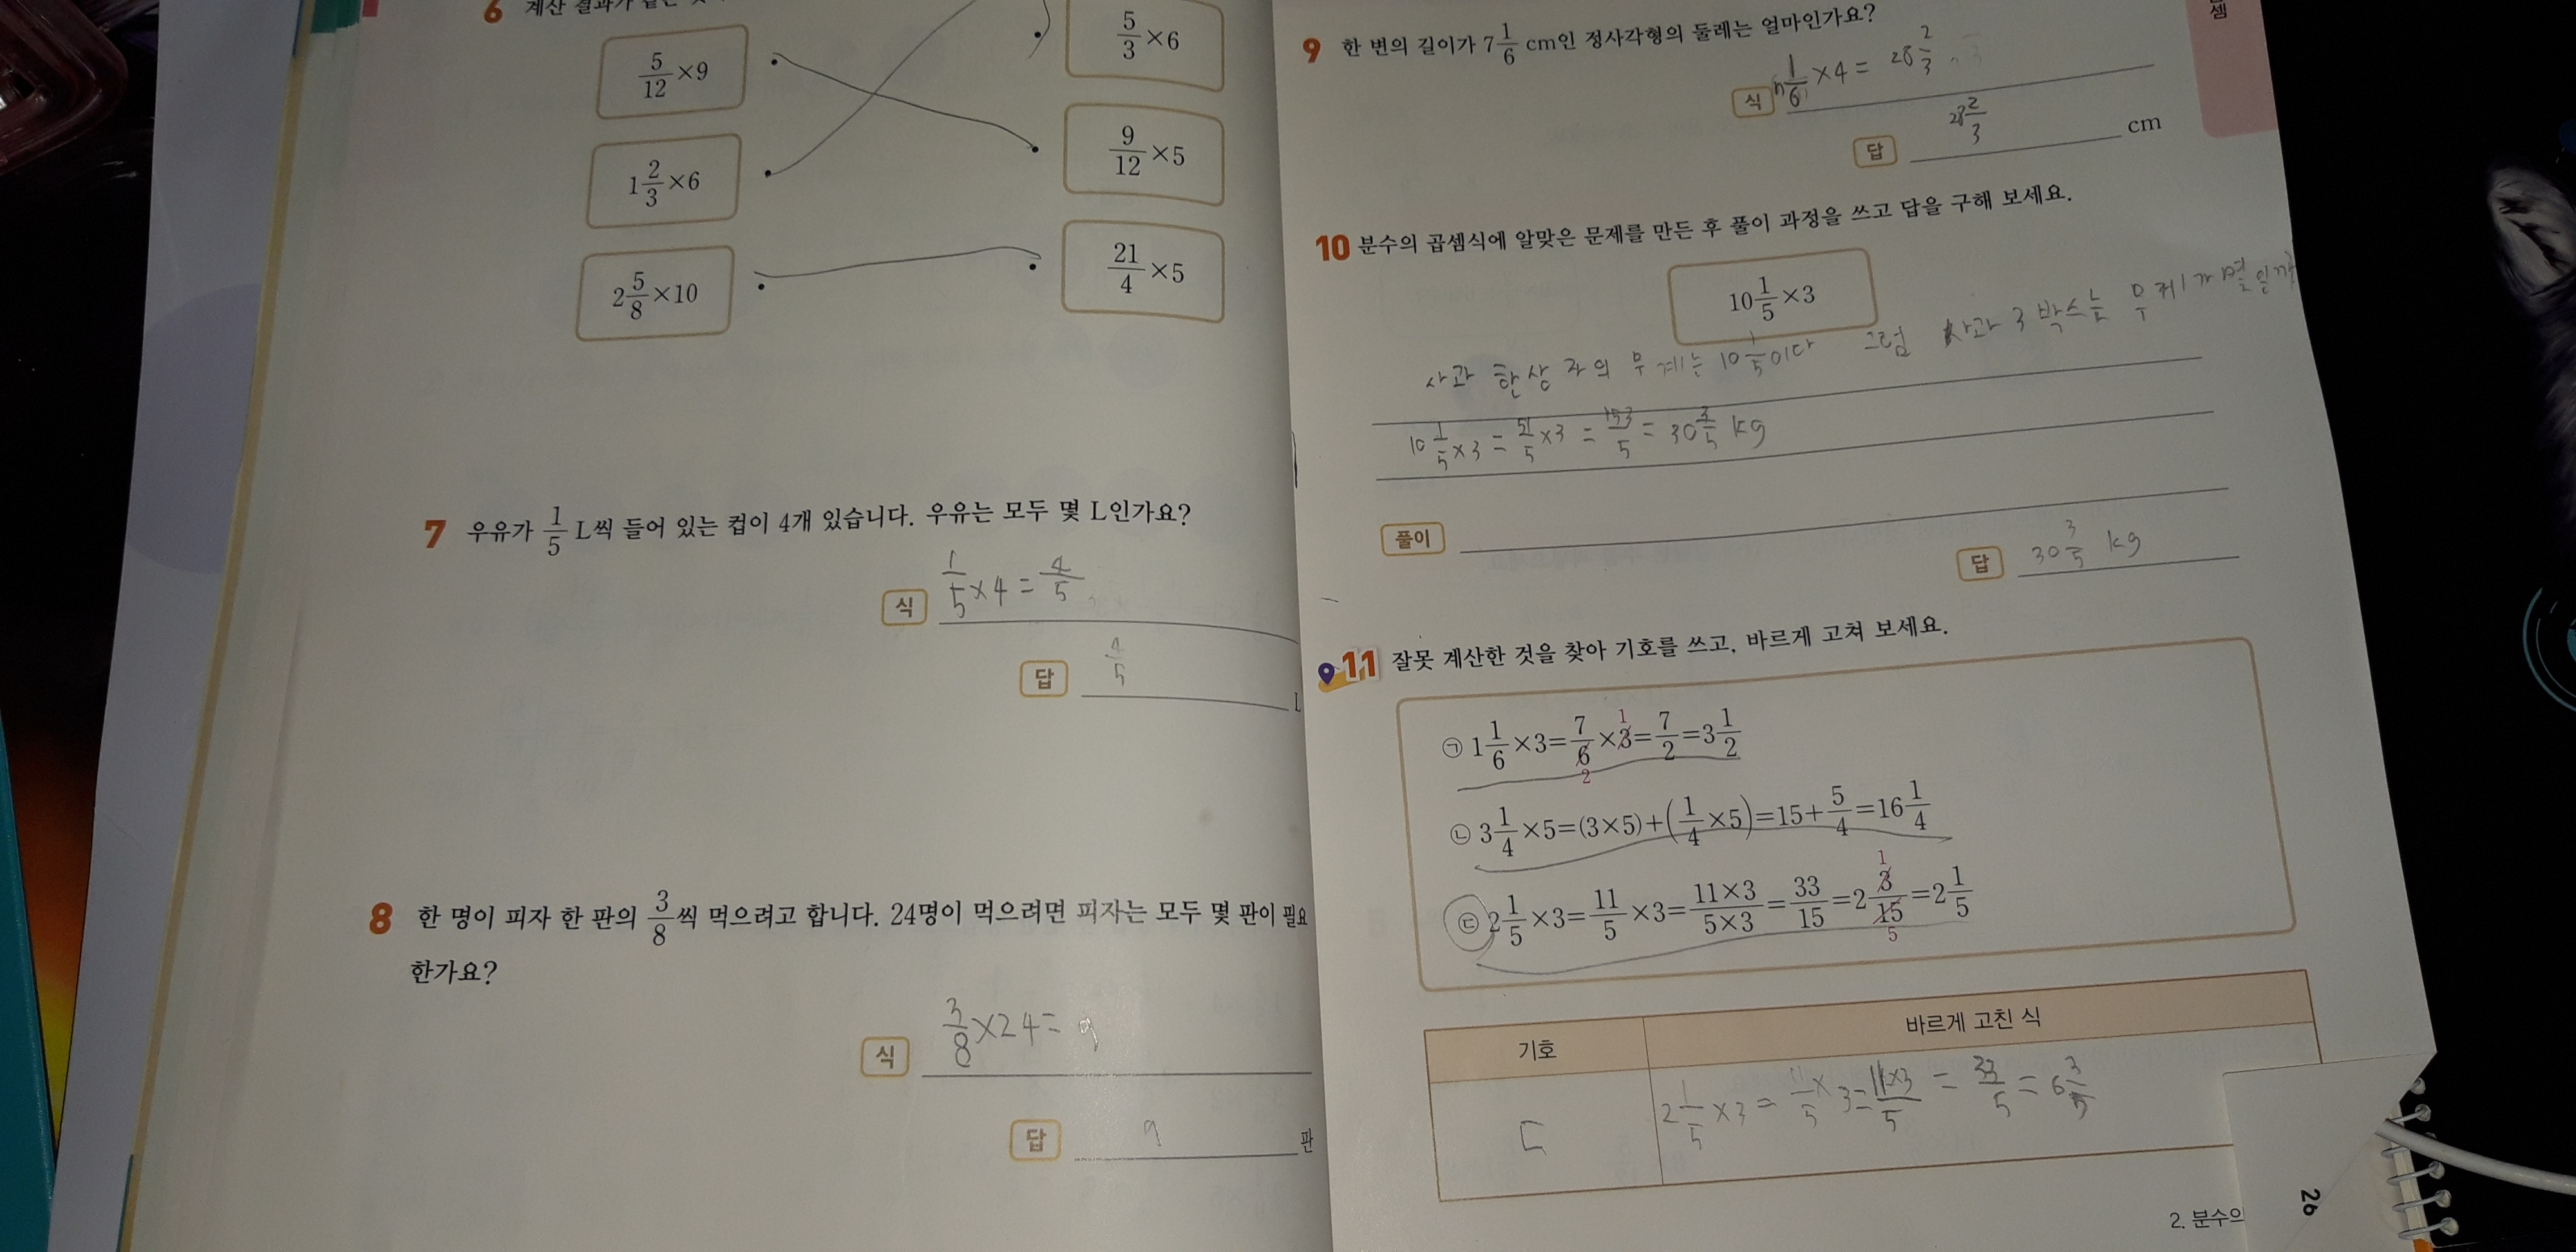 6 계산 결과가 같은
5/12 ×9
5/3 ×6
1 2/3 ×6
9/12 ×5
2 5/8 ×10
21/4 ×5
7 우유가 1/5 L씩 들어 있는 컵이 4개 있습니다. 우유는 모두 몇 L인가요?
식 1/5 ×4 = 4/5
답 4/5 L
8 한 명이 피자 한 판의 3/8씩 먹으려고 합니다. 24명이 먹으려면 피자는 모두 몇 판이 필요
한가요?
식 3/8 ×24= 9
답 9 판
셈
9 한 변의 길이가 7 1/6 cm인 정사각형의 둘레는 얼마인가요?
식 1/6 ×4 = 28 2/3
답 28 2/3 cm
10 분수의 곱셈식에 알맞은 문제를 만든 후 풀이 과정을 쓰고 답을 구해 보세요.
10 1/5 ×3
사과 한상자의 무게는 10 1/5이다 그럼 사과 3박스는 무게가 몇일까
10 1/5 ×3 = 51/5 ×3 = 153/5 = 30 3/5 kg
풀이
답 30 3/5 kg
11 잘못 계산한 것을 찾아 기호를 쓰고, 바르게 고쳐 보세요.
㉠ 1 1/6 ×3= 7/6 ×3= 7/2 =3 1/2
1
2
㉡ 3 1/4 ×5=(3×5)+(1/4 ×5)=15+ 5/4 =16 1/4
㉢ 2 1/5 ×3= 11/5 ×3= 11×3/5×3 = 33/15 =2 3/15 =2 1/5
1
5
기호 바르게 고친 식
ㄷ 2 1/5 ×3 = 11/5 × 3 = 11×3/5 = 33/5 = 6 3/5
2. 분수의
26